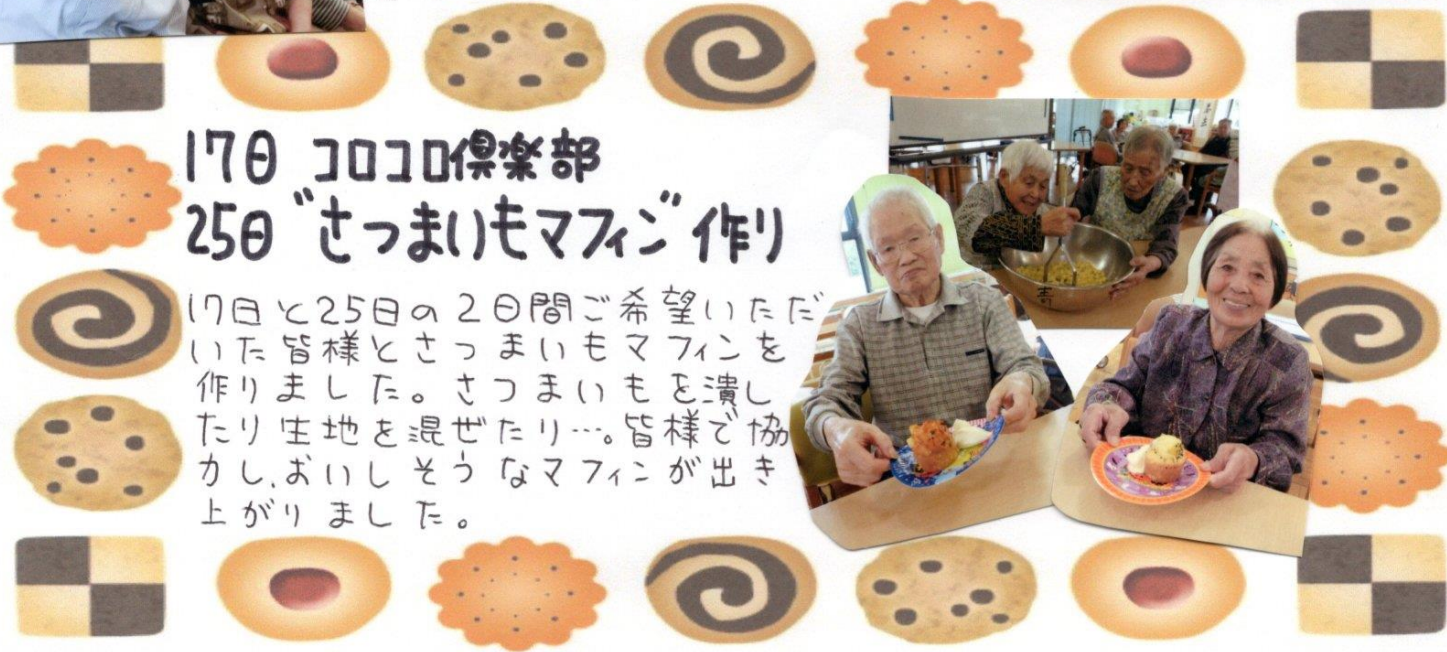 17日 コロコロ倶楽部
25日 "さつまいもマフィン" 作り
17日と25日の2日間ご希望いただ
いた皆様とさつまいもマフィンを
作りました。さつまいもを潰し
たり生地を混ぜたり…。皆様で協
力し、おいしそうなマフィンが出き
上がりました。